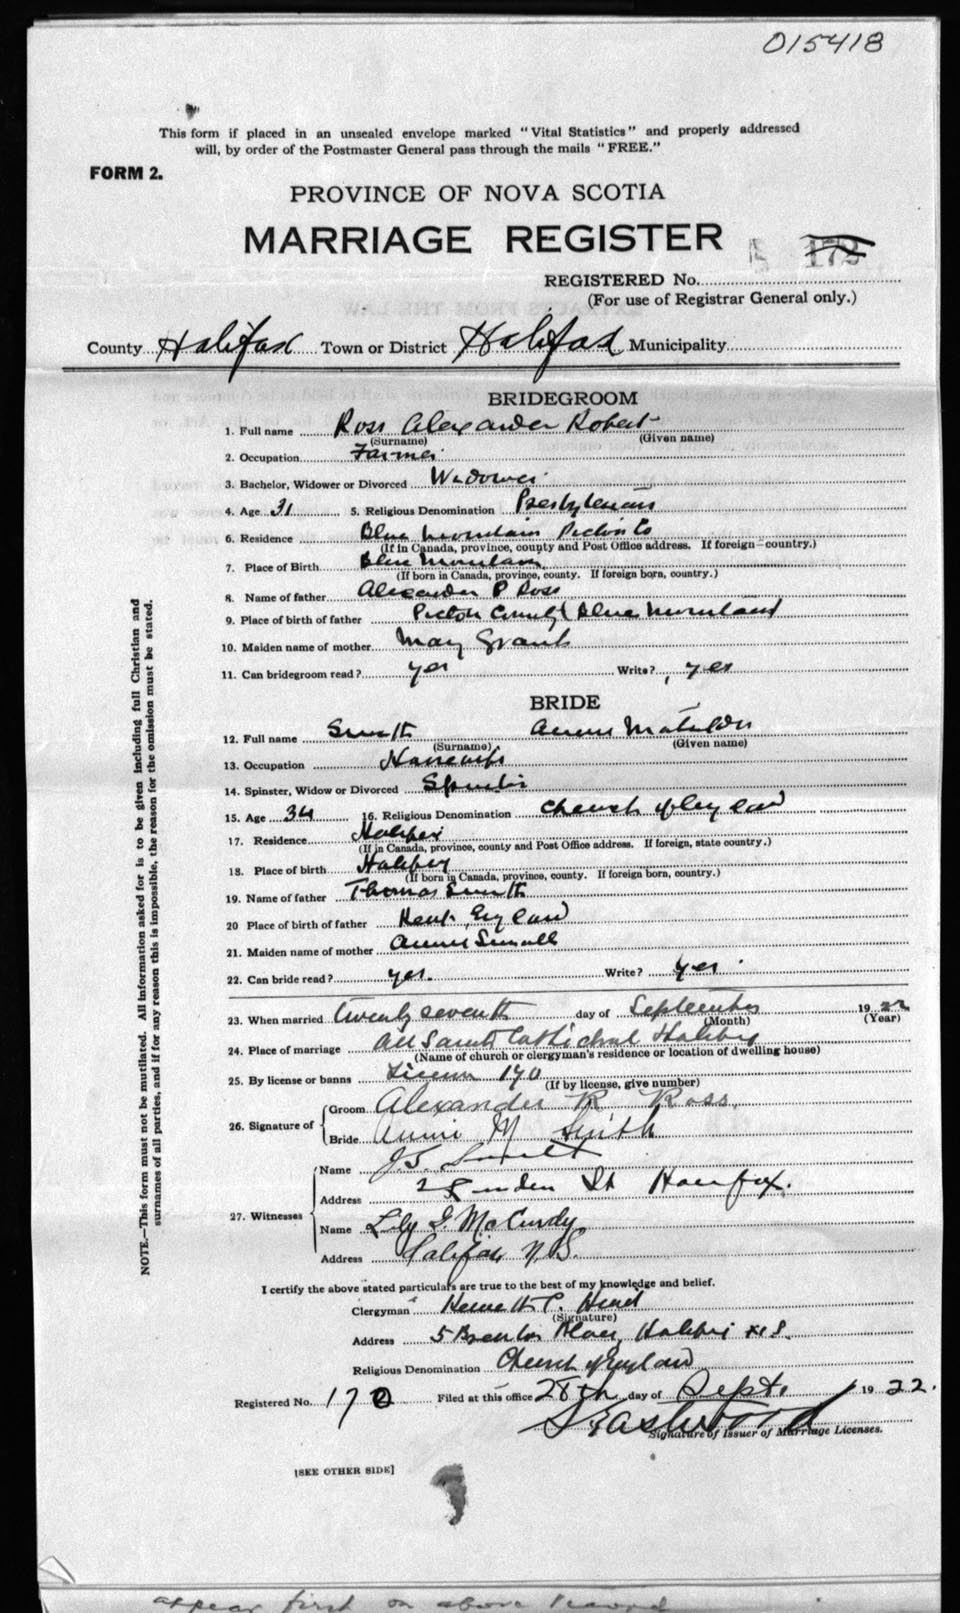 015418
This form if placed in an unsealed envelope marked "Vital Statistics" and properly addressed
will, by order of the Postmaster General pass through the mails "FREE."
FORM 2.
PROVINCE OF NOVA SCOTIA
MARRIAGE REGISTER
172
REGISTERED No.
(For use of Registrar General only.)
County Halifax Town or District Halifax Municipality
BRIDEGROOM
1. Full name Ross Alexander Robert
(Surname) (Given name)
2. Occupation Farmer
3. Bachelor, Widower or Divorced Widower
4. Age 31 5. Religious Denomination Presbyterian
6. Residence Blue Mountain Pictou Co
(If in Canada, province, county and Post Office address. If foreign—country.)
7. Place of Birth Blue Mountain
(If born in Canada, province, county. If foreign born, country.)
8. Name of father Alexander P Ross
9. Place of birth of father Pictou County (Blue Mountain)
10. Maiden name of mother Mary Grant
11. Can bridegroom read? yes Write? yes
BRIDE
12. Full name Smith Annie Matilda
(Surname) (Given name)
13. Occupation Housewife
14. Spinster, Widow or Divorced Spinster
15. Age 34 16. Religious Denomination Church of England
17. Residence Halifax
(If in Canada, province, county and Post Office address. If foreign, state country.)
18. Place of birth Halifax
(If born in Canada, province, county. If foreign born, country.)
19. Name of father Thomas Smith
20 Place of birth of father Kent, England
21. Maiden name of mother Annie Small
22. Can bride read? yes. Write? yes
23. When married twenty seventh day of September 1922
(Month) (Year)
24. Place of marriage All Saints Cathedral Halifax
(Name of church or clergyman's residence or location of dwelling house)
25. By license or banns License 170
(If by license, give number)
26. Signature of
Groom Alexander R Ross.
Bride Annie M Smith
27. Witnesses
Name J.S. Smith
Address Linden St Halifax.
Name Lily G McCurdy,
Address Halifax, N.S.
I certify the above stated particulars are true to the best of my knowledge and belief.
Clergyman Kenneth C. Hind
(Signature)
Address 5 Brenton Place, Halifax N.S.
Religious Denomination Church of England
Registered No. 170 Filed at this office 28th day of Sept. 1922.
Eastwood
Signature of Issuer of Marriage Licenses.
[SEE OTHER SIDE]
NOTE.—This form must not be mutilated. All information asked for is to be given including full Christian and
surnames of all parties, and if for any reason this is impossible, the reason for the omission must be stated.
appear first on above record